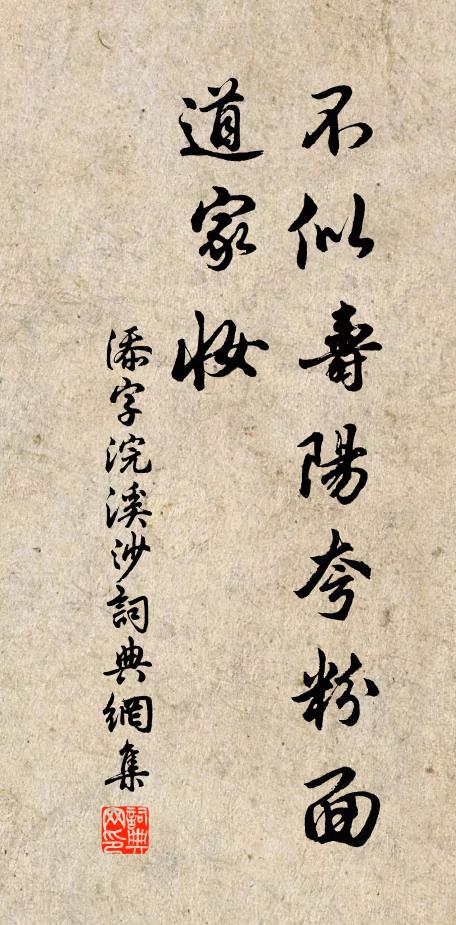 不似壽陽夸粉面
道家妝
添字浣溪沙詞典網集
詞典网印